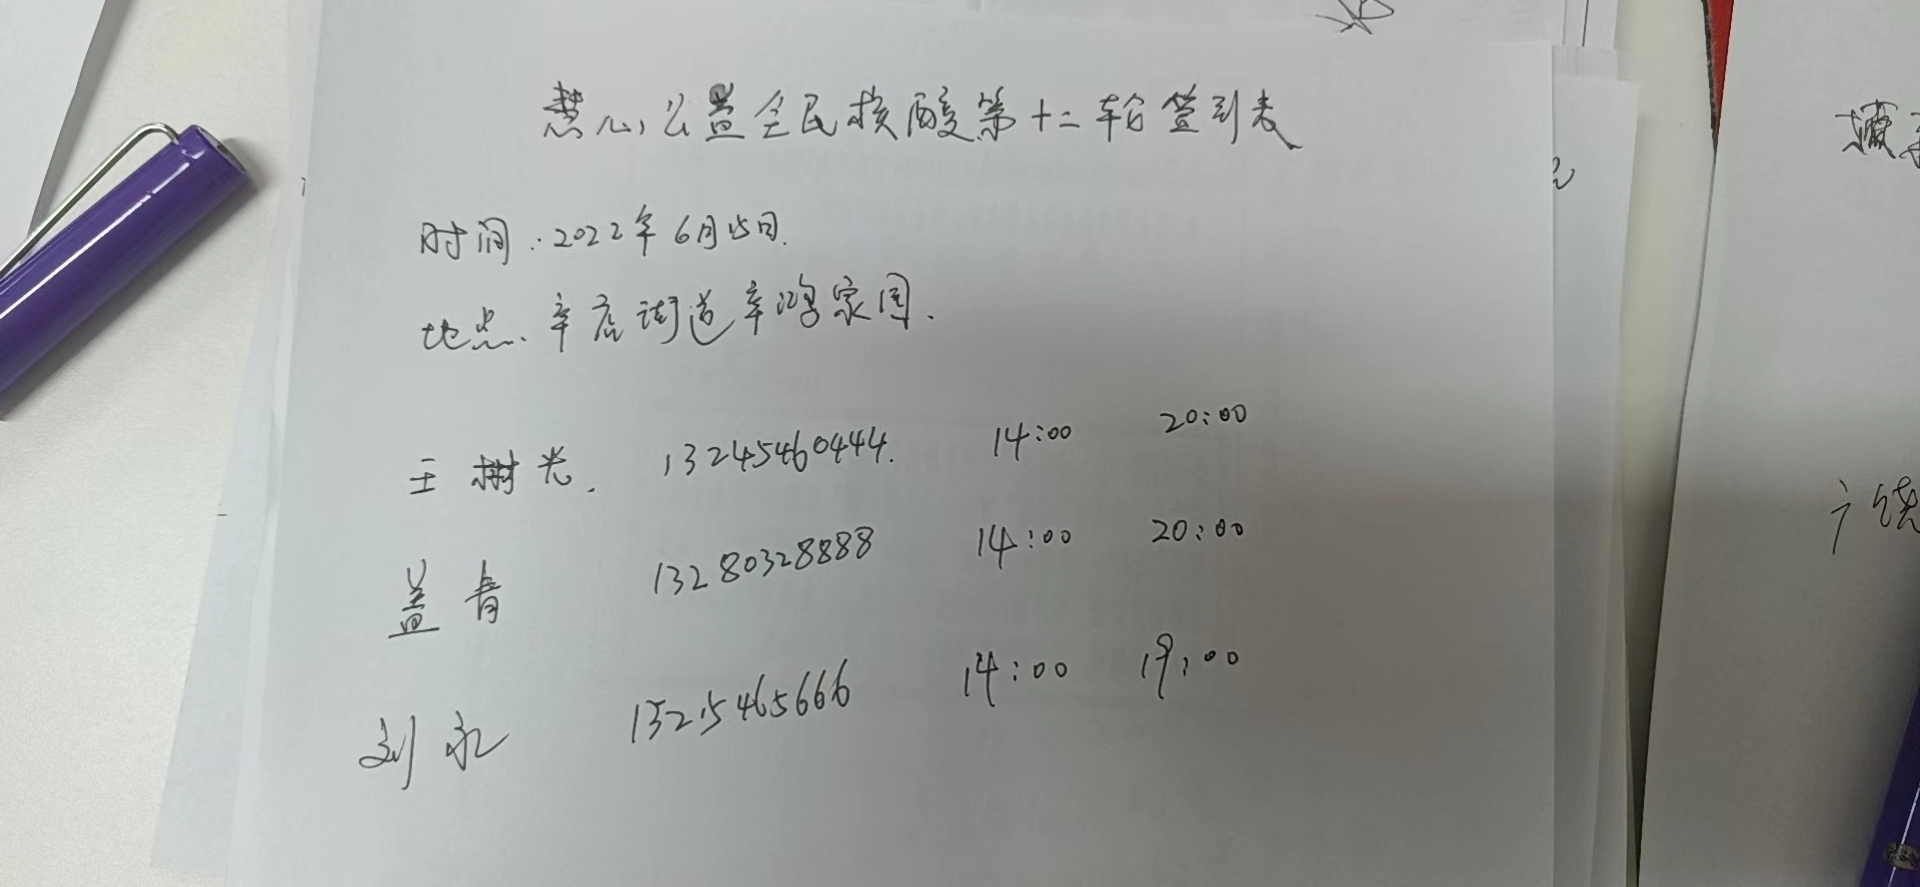 慧心公益全民核酸第十二轮签到表
时间:2022年6月15日.
地点.辛店街道辛鸿家园.
王树光. 13245460444. 14:00 20:00
盖青 13280328888 14:00 20:00
刘永 13215465666 14:00 19:00
广饶